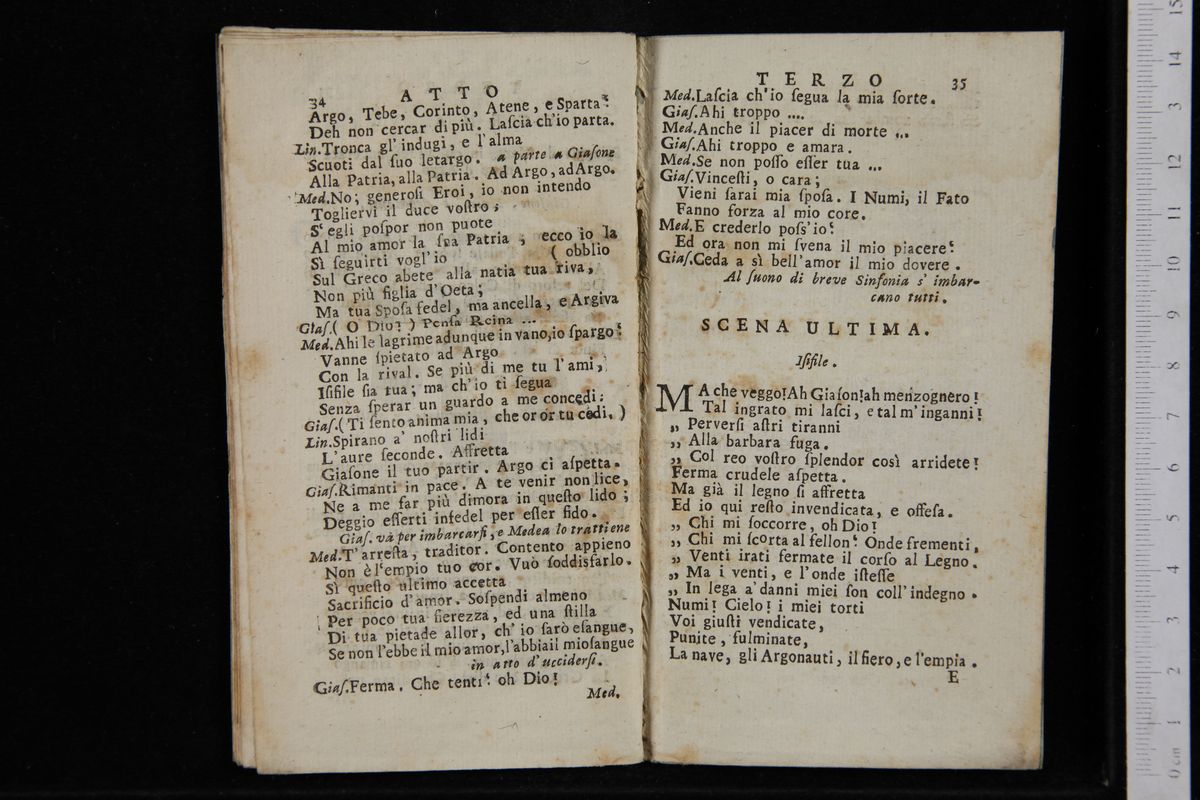 34 ATTO
Argo, Tebe, Corinto, Atene, e Sparta?
Deh non cercar di più. Laſcia ch'io parta.
Lin.Tronca gl' indugi, e l'alma
Scuoti dal ſuo letargo. a parte a Giaſone
Alla Patria, alla Patria. Ad Argo, ad Argo.
Med.No; generoſi Eroi, io non intendo
Togliervi il duce voſtro;
S' egli poſpor non puote
Al mio amor la ſua Patria, ecco io la
Sì ſeguirti vogl'io ( obblio
Sul Greco abete alla natia tua riva,
Non più figlia d'Oeta;
Ma tua Spoſa fedel, ma ancella, e Argiva
Giaſ.( O Dio? ) Penſa Reina ...
Med.Ahi le lagrime adunque in vano, io ſpargo?
Vanne ſpietato ad Argo
Con la rival. Se più di me tu l'ami,
Iſifile ſia tua; ma ch'io ti ſegua
Senza ſperar un guardo a me concedi:
Giaſ.( Ti ſento anima mia, che or or tu cedi. )
Lin.Spirano a' noſtri lidi
L'aure ſeconde. Affretta
Giaſone il tuo partir. Argo ci aſpetta.
Giaſ.Rimanti in pace. A te venir non lice,
Ne a me far più dimora in queſto lido;
Deggio eſſerti infedel per eſſer fido.
Giaſ. và per imbarcarſi, e Medea lo trattiene
Med.T'arreſta, traditor. Contento appieno
Non è l'empio tuo cor. Vuò ſoddisfarlo.
Sì queſto ultimo accetta
Sacrificio d'amor. Soſpendi almeno
Per poco tua fierezza, ed una ſtilla
Di tua pietade allor, ch' io ſarò eſangue,
Se non l'ebbe il mio amor, l'abbia il mio ſangue
in atto d'ucciderſi.
Giaſ.Ferma. Che tenti? oh Dio!
Med.
TERZO 35
Med.Laſcia ch'io ſegua la mia ſorte.
Giaſ.Ahi troppo ....
Med.Anche il piacer di morte ...
Giaſ.Ahi troppo e amara.
Med.Se non poſſo eſſer tua ...
Giaſ.Vinceſti, o cara;
Vieni ſarai mia ſpoſa. I Numi, il Fato
Fanno forza al mio core.
Med.E crederlo poſs'io?
Ed ora non mi ſvena il mio piacere?
Giaſ.Ceda a sì bell'amor il mio dovere.
Al ſuono di breve Sinfonia s' imbar-
cano tutti.
SCENA ULTIMA.
Iſifile.
MA che veggo! Ah Giaſon! ah menzognero!
Tal ingrato mi laſci, e tal m'inganni!
„ Perverſi aſtri tiranni
„ Alla barbara fuga.
„ Col reo voſtro ſplendor così arridete!
Ferma crudele aſpetta.
Ma già il legno ſi affretta
Ed io qui reſto invendicata, e offeſa.
„ Chi mi ſoccorre, oh Dio!
„ Chi mi ſcorta al fellon? Onde frementi,
„ Venti irati fermate il corſo al Legno.
„ Ma i venti, e l'onde iſteſſe
„ In lega a'danni miei ſon coll'indegno.
Numi! Cielo! i miei torti
Voi giuſti vendicate,
Punite, fulminate,
La nave, gli Argonauti, il fiero, e l'empia.
E
0 cm 1 2 3 4 5 6 7 8 9 10 11 12 13 14 15